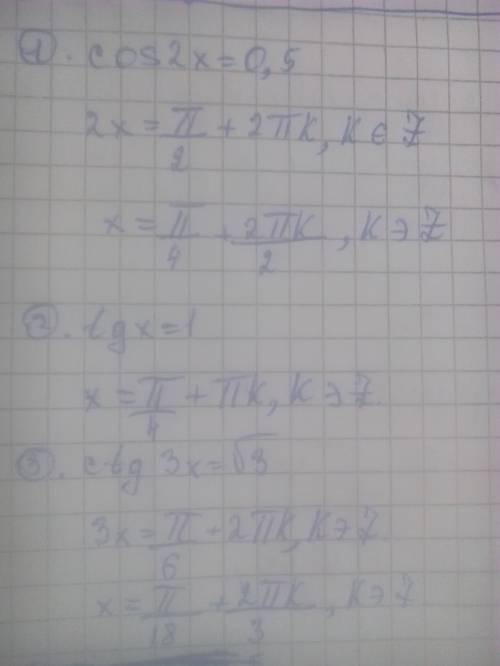 1. cos2x=0,5
2x = π/2 + 2πK, K ∈ Z
x = π/4 + 2πK/2, K ∋ Z
2. tgx=1
x = π/4 + πK, K ∋ Z.
3. ctg 3x=√3
3x = π/6 + 2πK, K ∋ Z.
x = π/18 + 2πK/3, K ∋ Z